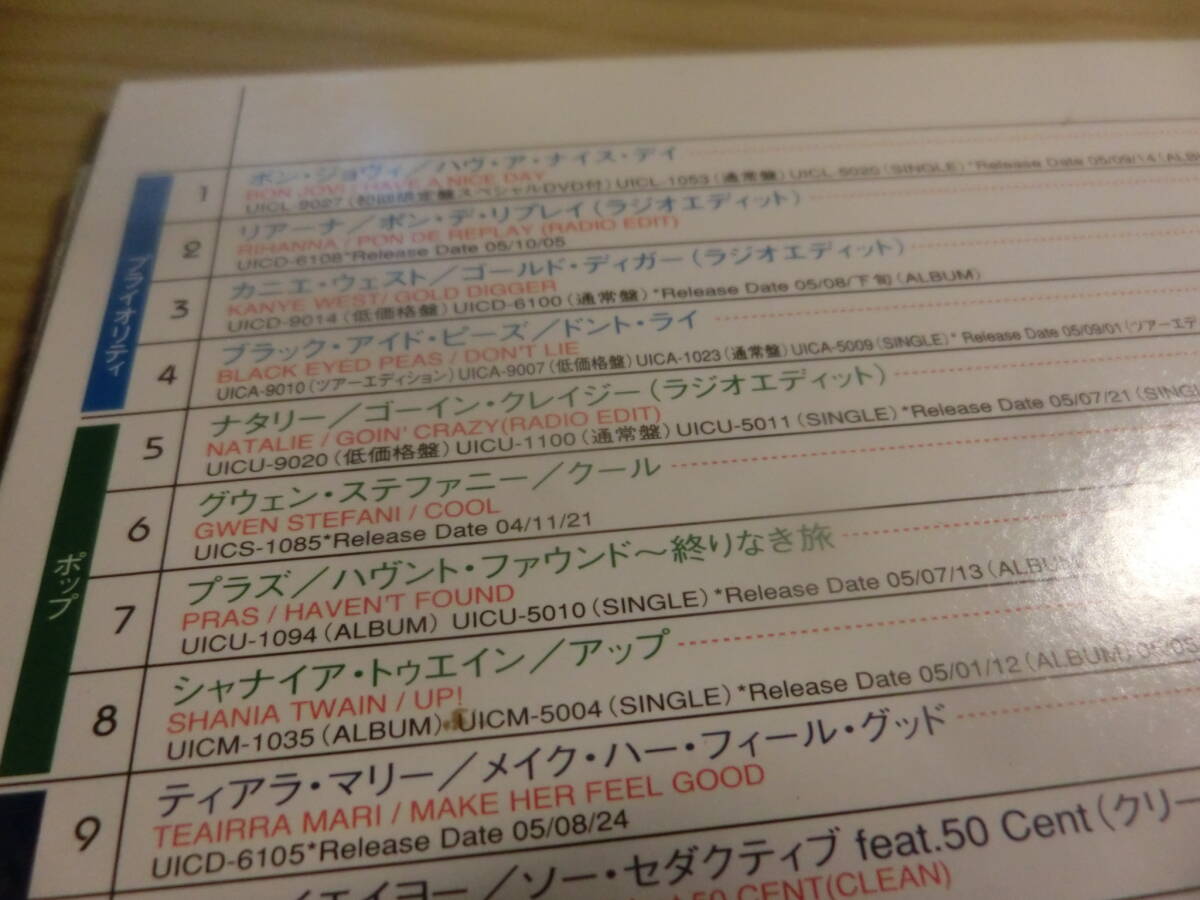 プライオリティ
1 ボン・ジョヴィ／ハヴ・ア・ナイス・デイ
BON JOVI / HAVE A NICE DAY
UICL-9027 (初回限定盤スペシャルDVD付) UICL-1053 (通常盤) UICL-5020 (SINGLE) *Release Date 05/09/14 (ALB
2 リアーナ／ポン・デ・リプレイ (ラジオエディット)
RIHANNA / PON DE REPLAY (RADIO EDIT)
UICD-6108*Release Date 05/10/05
3 カニエ・ウェスト／ゴールド・ディガー (ラジオエディット)
KANYE WEST/ GOLD DIGGER
UICD-9014 (低価格盤) UICD-6100 (通常盤) *Release Date 05/08/下旬 (ALBUM)
4 ブラック・アイド・ピーズ／ドント・ライ
BLACK EYED PEAS / DON'T LIE
UICA-9010 (ツアーエディション) UICA-9007 (低価格盤) UICA-1023 (通常盤) UICA-5009 (SINGLE) * Release Date 05/09/01 (ツアーエデ
ポップ
5 ナタリー／ゴーイン・クレイジー (ラジオエディット)
NATALIE / GOIN' CRAZY(RADIO EDIT)
UICU-9020 (低価格盤) UICU-1100 (通常盤) UICU-5011 (SINGLE) *Release Date 05/07/21 (SINGL
6 グウェン・ステファニー／クール
GWEN STEFANI / COOL
UICS-1085*Release Date 04/11/21
7 プラズ／ハヴント・ファウンド〜終りなき旅
PRAS / HAVEN'T FOUND
UICU-1094 (ALBUM) UICU-5010 (SINGLE) *Release Date 05/07/13 (ALBU
8 シャナイア・トゥエイン／アップ
SHANIA TWAIN / UP!
UICM-1035 (ALBUM) UICM-5004 (SINGLE) *Release Date 05/01/12 (ALBUM)
9 ティアラ・マリー／メイク・ハー・フィール・グッド
TEAIRRA MARI / MAKE HER FEEL GOOD
UICD-6105*Release Date 05/08/24
／ソー・セダクティブ feat.50 Cent (クリー
50 CENT(CLEAN)